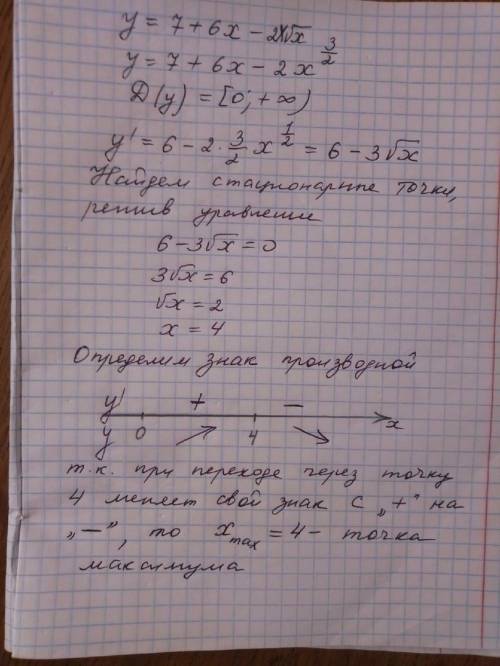 y = 7 + 6x − 2x√x
y = 7 + 6x − 2x^(3/2)
D(y) = [0; +∞)
y' = 6 − 2 · 3/2 x^(1/2) = 6 − 3√x
Найдем стационарные точки,
решив уравнение
6 − 3√x = 0
3√x = 6
√x = 2
x = 4
Определим знак производной
y' + −
y 0 ↗ 4 ↘ x
т.к. при переходе через точку
4 меняет свой знак с „+" на
„−", то x_max = 4 − точка
максимума